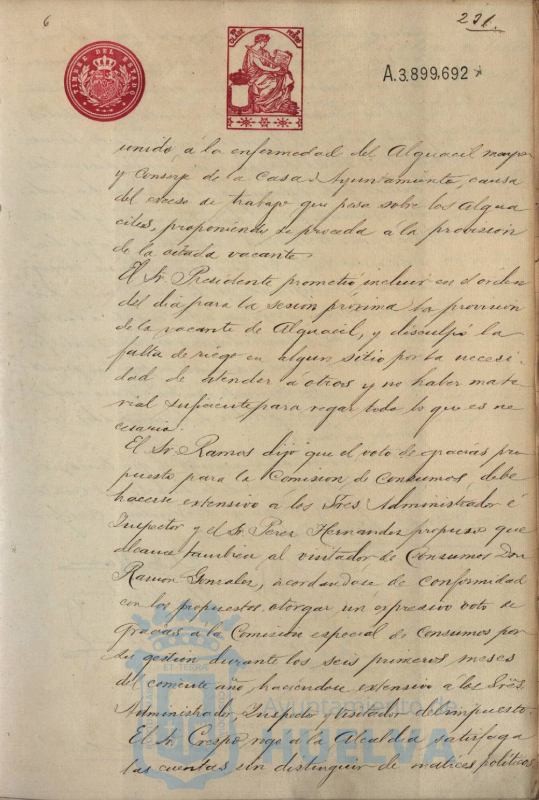 6
231.
TIMBRE DEL ESTADO
A.3.899,692
unido, á la enfermedad del Alguacil mayor
y Conserje de la Casa Ayuntamiento, causa
del exceso de trabajo que pesa sobre los Algua
ciles, proponiendo se proceda á la provisión
de la citada vacante.
El Sr. Presidente prometió incluir en el órden
del dia para la sesión próxima la provision
de la vacante de Alguacil, y disculpó la
falta de riego en algun sitio por la necesi
dad de atender á otros y no haber mate
rial suficiente para regar todo lo que es ne
cesario.
El Sr. Ramos dijo que el voto de gracias pro
puesto para la Comision de Consumos, debe
hacerse extensivo á los Sres Administrador é
Inspector y el Sr. Perez Hernandez propuso que
alcance tambien al visitador de Consumos Don
Ramon Gonzalez, acordandose de conformidad
con los propuestos otorgar un expresivo voto de
gracias á la Comision especial de Consumos por
su gestión durante los seis primeros meses
del corriente año, haciéndose extensivo á los Sres.
Administrador, Inspector y visitador del impuesto.
El Sr. Crespo, rogó á la Alcaldia satisfaga
las cuentas sin distinguir de matices politicos
Ayuntamiento de
HUELVA